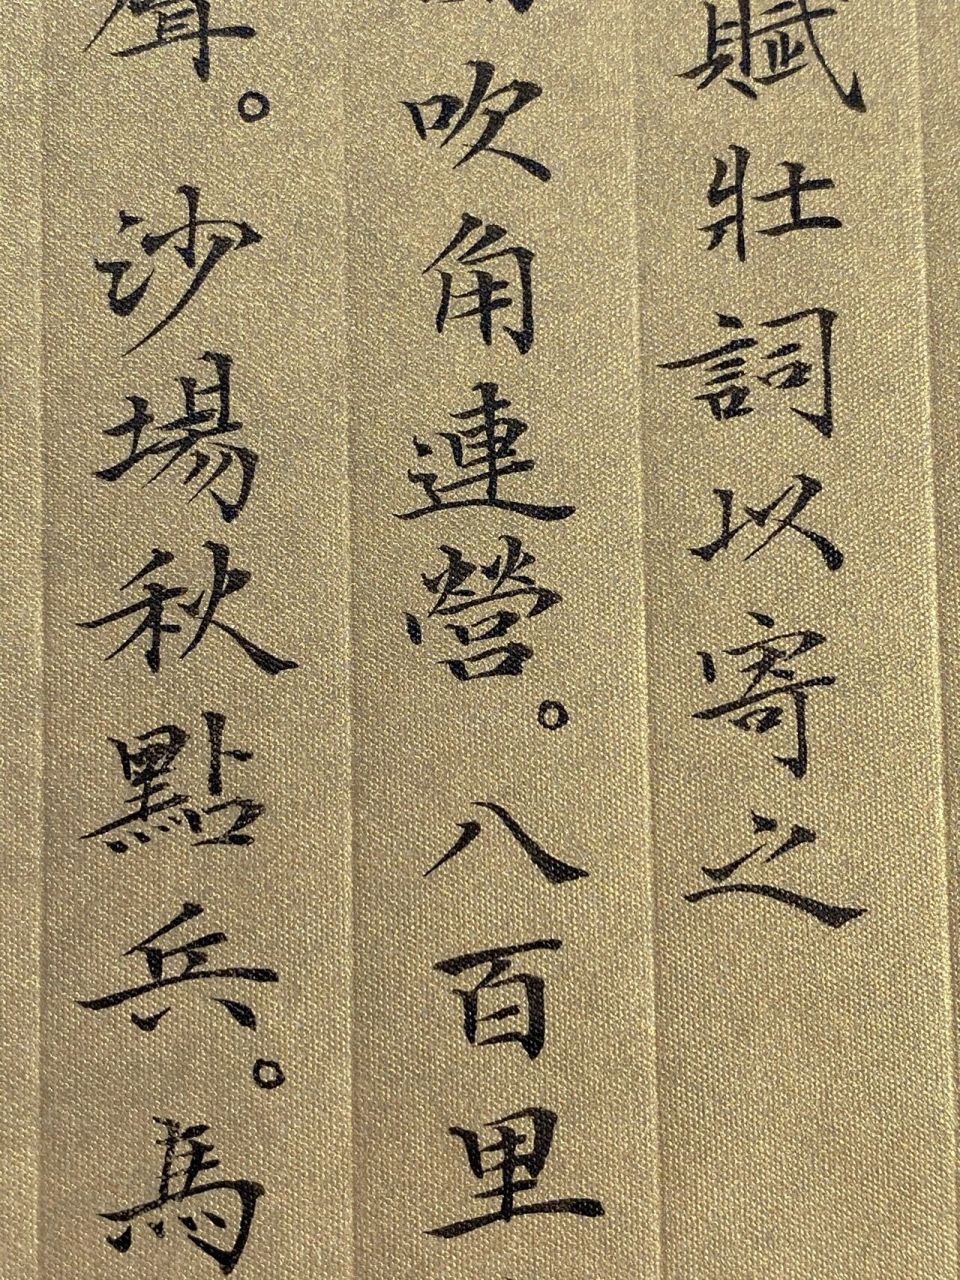 賦壯詞以寄之
吹角連營。八百里
聲。沙場秋點兵。馬